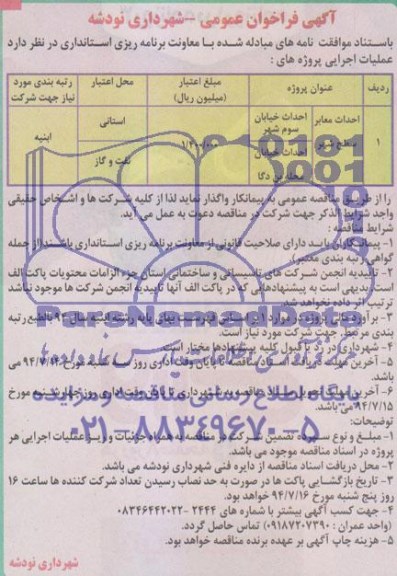 آگهی فراخوان عمومی -شهرداری نودشه
باستناد موافقت نامه های مبادله شده با معاونت برنامه ریزی استانداری در نظر دارد
عملیات اجرایی پروژه های :
ردیف عنوان پروژه مبلغ اعتبار (میلیون ریال) محل اعتبار رتبه بندی مورد نیاز جهت شرکت
۱ احداث معابر سطح شهر احداث خیابان سوم شهر استانی نفت و گاز ابنیه
را از طریق مناقصه عمومی به پیمانکار واگذار نماید لذا از کلیه شرکت ها و اشخاص حقیقی
واجد شرایط الذکر جهت شرکت در مناقصه دعوت به عمل می آید.
شرایط مناقصه :
۱- پیمانکاران باید دارای صلاحیت قانونی از معاونت برنامه ریزی استانداری باشند از جمله
گواهی رتبه بندی معتبر).
۲- تاییدیه انجمن شرکت های تاسیساتی و ساختمانی استان جزء الزامات محتویات پاکت الف
است بدیهی است به پیشنهادهایی که در پاکت الف آنها تاییدیه انجمن شرکت ها موجود نباشد
ترتیب اثر داده نخواهد شد.
۳- برآورد مالی پروژه در موارد پایه رشته ابنیه سال ۹۴ رتبه
بندی مرتبط، جهت شرکت مورد نیاز است.
۴- شهرداری در رد یا قبول کلیه پیشنهادها مختار است.
۵- آخرین مهلت دریافت اسناد مناقصه تا پایان وقت اداری روز شنبه مورخ
می باشد.
۶- آخرین مهلت تحویل اسناد مناقصه به شهرداری تا پایان وقت اداری روز چهارشنبه مورخ
۹۴/۷/۱۵ می باشد.
توضیحات:
۱- مبلغ و نوع سپرده تضمین شرکت در مناقصه به همراه جزئیات و ریز عملیات اجرایی هر
پروژه در اسناد مناقصه موجود می باشد.
۲- محل دریافت اسناد مناقصه از دایره فنی شهرداری نودشه می باشد.
۳- تاریخ بازگشایی پاکت ها در صورت به حد نصاب رسیدن تعداد شرکت کننده ها ساعت ۱۶
روز پنج شنبه مورخ ۹۴/۷/۱۶ خواهد بود.
۴- جهت کسب آگهی بیشتر با شماره های ۲۴۴۴ -۰۸۳۴۶۴۴۲۰۲۲
(واحد عمران : ۰۹۱۸۷۲۰۷۳۹۰) تماس حاصل گردد.
۵- هزینه چاپ آگهی بر عهده برنده مناقصه خواهد بود.
شهرداری نودشه
ParsNamadData
پایگاه اطلاع رسانی مناقصه و مزایده
۰۲۱-۸۸۳۴۹۶۷۰-۵